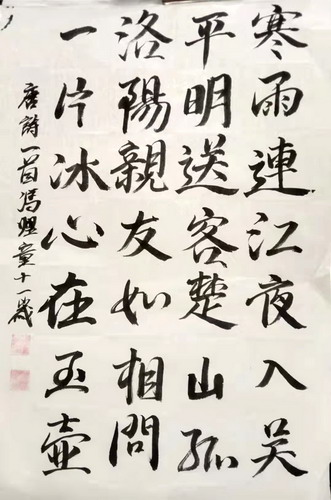 寒雨連江夜入吴
平明送客楚山孤
洛陽親友如相問
一片冰心在玉壺
唐詩一首馮煜童十一歲